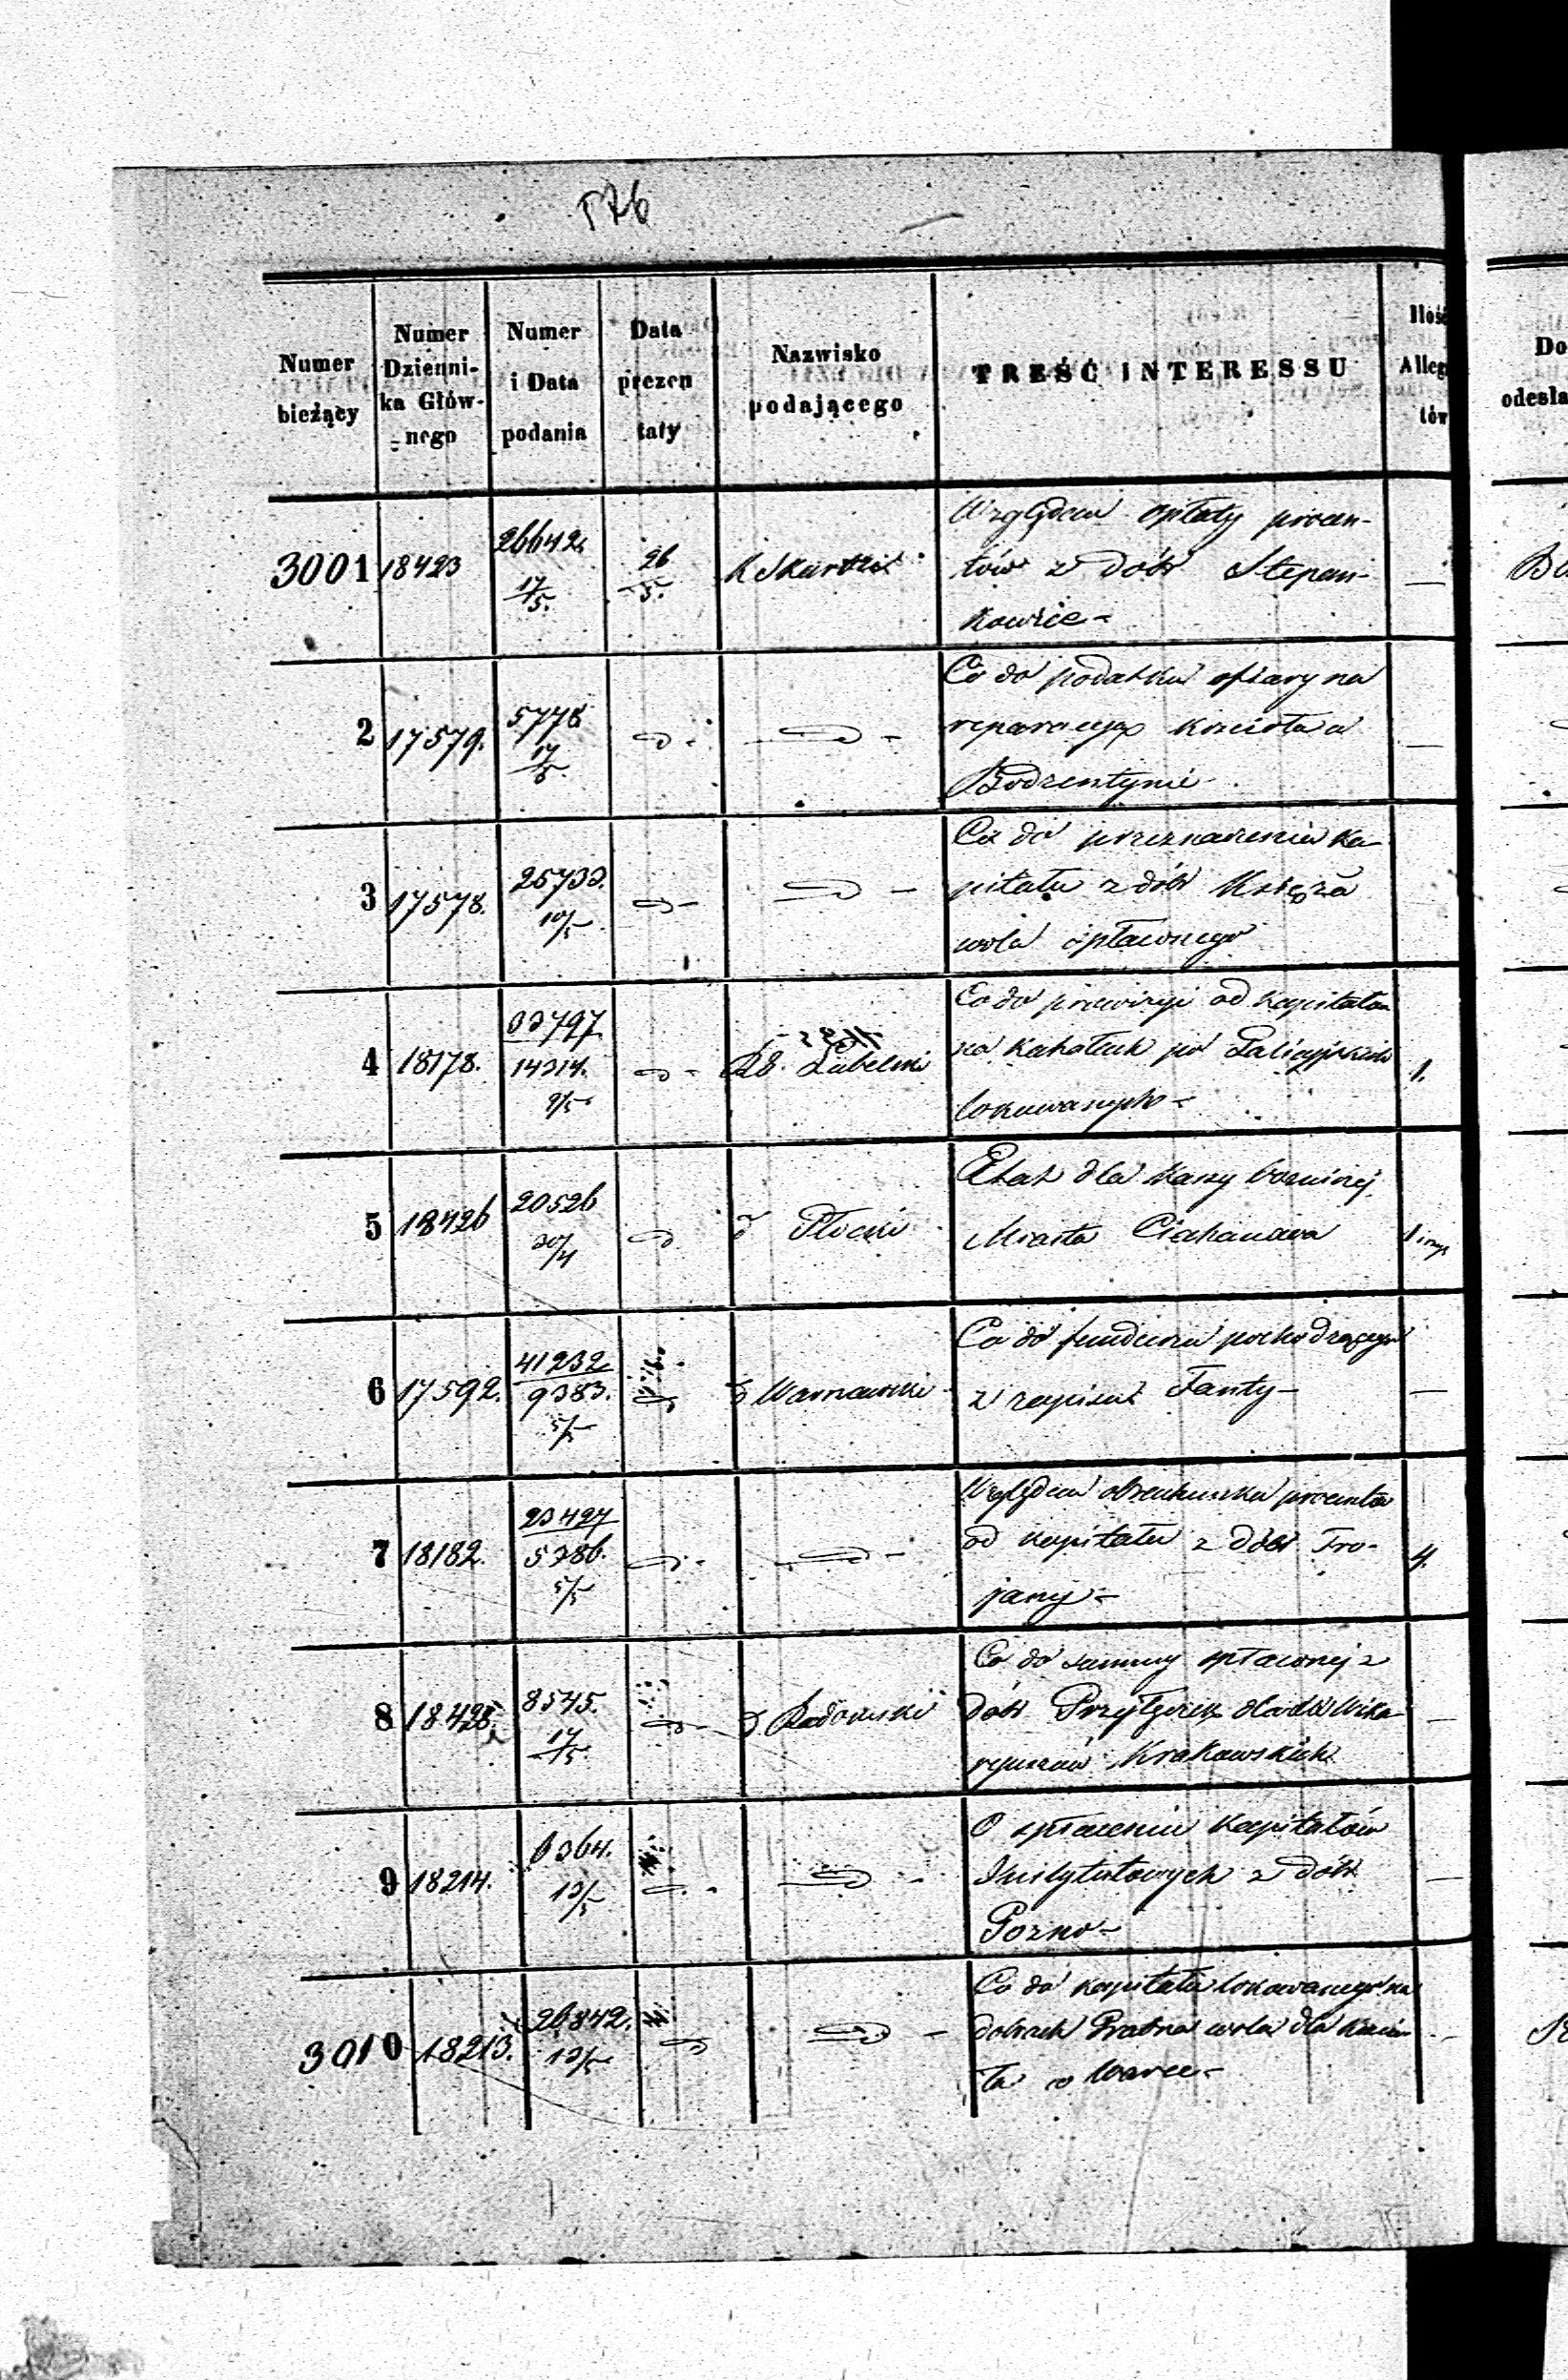 576
Numer bieżący
Numer Dzienni- ka Głów- nego
Numer i Data podania
Data prezen taty
Nazwisko podającego
TREŚĆ INTERESSU
Ilość Alleg tów
Do odesła
3001 18423 26642 17/5. 26/5. K Skarbu
Względem opłaty procen-
tów z dóbr Stepan-
kowice -
2 17579. 5778 17/5.
Co do podatku ofiary na
reparacyą kościoła w
Bodzentynie
3 17578. 25733. 10/5
Co do przeznaczenia ka
pitału z dóbr Księża
wola spłaconego
4 18178. 33797 14314. 9/5 Rb. Lubelski 1.
Co do prowizyi od kapitałów
na kahałach po Galicyjskich
lokowanych -
5 18426 20526 30/4 d Płocki 1
Etat dla Kassy bożniczej
Miasta Ciechanowa
6 17592. 41232 9383. 5/5 d Warszawski
Co do funduszu pochodzącego
z zapisu Fanty -
7 18182. 23427 5386. 5/5 4.
Względem obrachunku procentów
od kapitału z dóbr Tro-
jany -
8 18428. 8545. 17/5 d. Radomski
Co do summy spłaconej z
dóbr dla XX Wika-
ryuszów Krakowskich
9 18214. 6364. 13/5
O spłaceniu Kapitałów
Instytutowych z dóbr
3010 18213. 26842. 13/5
Co do kapitału lokowanego na
dobrach wola dla Kościo
ła w Warce -